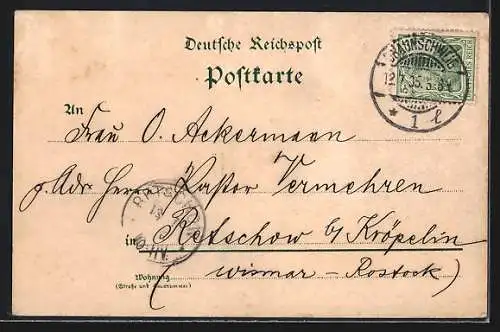 Deutsche Reichspost
Postkarte
BRAUNSCHWEIG
* 1 l
An
Frau O. Ackermann
p. Adr. Herrn Pastor Vermehren
RETSCHOW
in Retschow b/ Kröpelin
Wohnung
(Straße und Hausnummer)
(Wismar-Rostock)